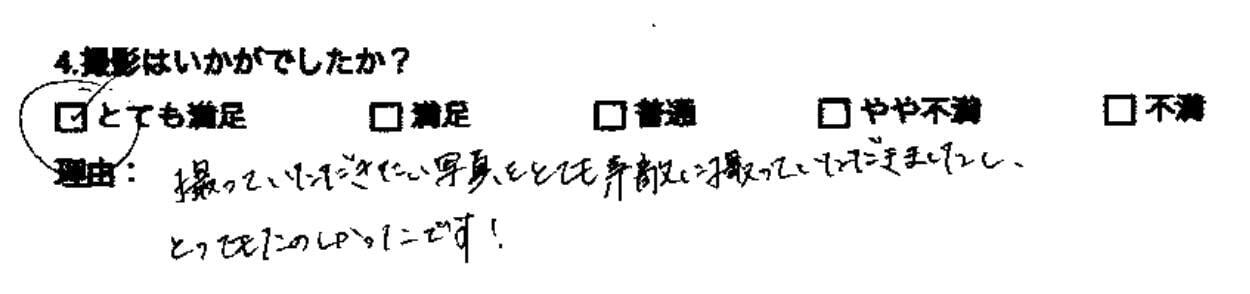 4.撮影はいかがでしたか？
☑とても満足 □満足 □普通 □やや不満 □不満
理由： 撮っていただきたい写真をとても素敵に撮っていただきましたし、
とってもたのしかったです！